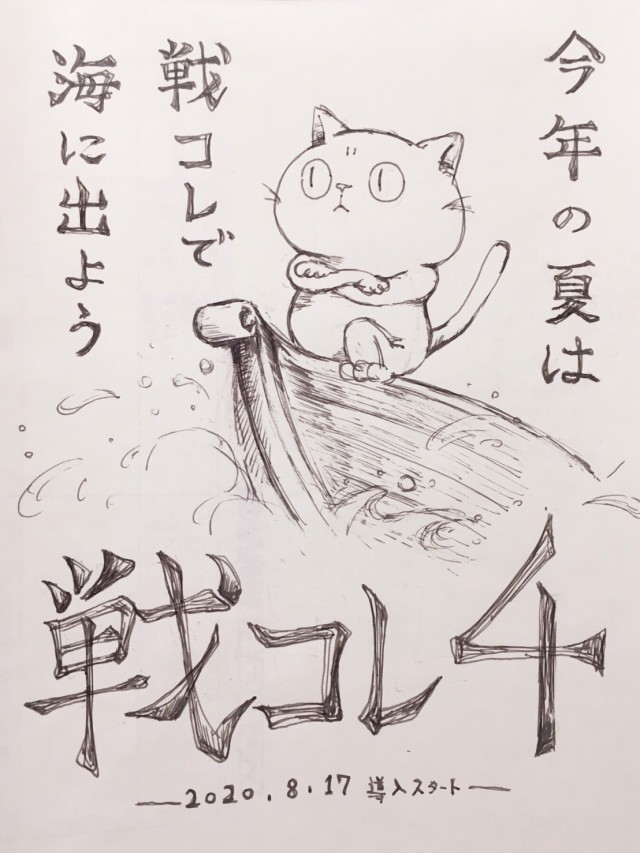 今年の夏は
戦コレで
海に出よう
戦コレ4
2020.8.17 導入スタート